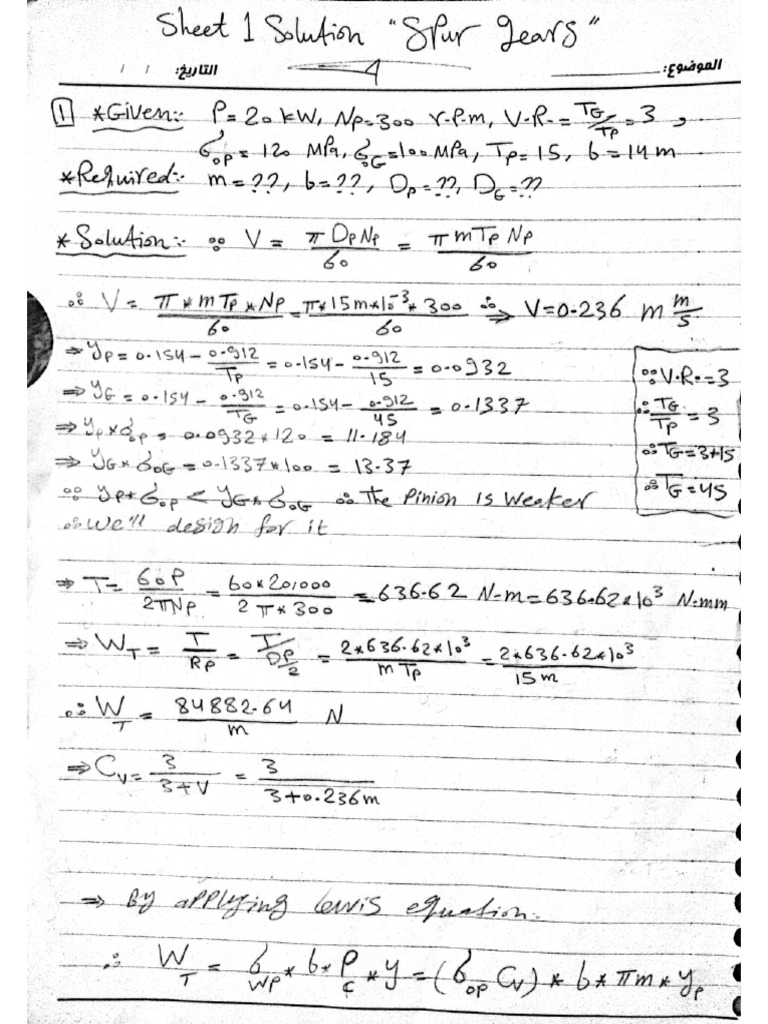 Sheet 1 Solution "Spur gears"
التاريخ: / / الموضوع:
1 *Given:- P=20 kW, Np=300 r.p.m, V.R.= TG/Tp = 3,
σop = 120 MPa, σoG=100 MPa, Tp=15, b=14 m
*Required:- m=??, b=??, Dp=??, DG=??
*Solution:- ∵ V = π Dp Np / 60 = π m Tp Np / 60
∴ V = π * m Tp * Np / 60 = π*15m*10⁻³*300 / 60 ∴⇒ V=0.236 m m/s
⇒ yp = 0.154 - 0.912/Tp = 0.154 - 0.912/15 = 0.0932
⇒ yG = 0.154 - 0.912/TG = 0.154 - 0.912/45 = 0.1337
⇒ yp*σop = 0.0932*120 = 11.184
⇒ yG*σoG = 0.1337*100 = 13.37
∵ yp*σop < yG*σoG ∴ The Pinion is weaker
∴ we'll design for it
∵ V.R.=3
∴ TG/Tp = 3
∴ TG=3*15
∴ TG=45
⇒ T= 60P / 2πNp = 60*20,000 / 2π*300 = 636.62 N-m = 636.62*10³ N.mm
⇒ WT = T/Rp = T/(Dp/2) = 2*636.62*10³ / m Tp = 2*636.62*10³ / 15m
∴ WT = 84882.64 / m N
⇒ Cv = 3 / 3+V = 3 / 3+0.236m
⇒ By applying lewis equation:-
∴ WT = σwp * b * Pc * y = (σop Cv) * b * πm * yp